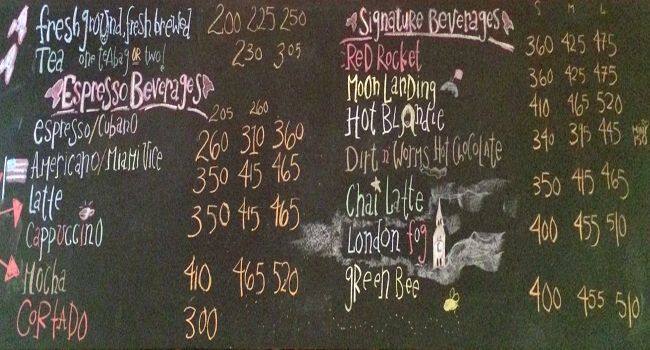 fresh ground, fresh brewed 200 225 250
Tea one teabag or two! 230 305
Espresso Beverages
espresso/Cubano 205 260
Americano/Miami Vice 260 310 360
Latte 350 415 465
Cappuccino 350 415 465
Mocha 410 465 520
CORTADO 300
Signature Beverages S M L
Red Rocket 360 425 475
Moon Landing 360 425 475
Hot Blondie 410 465 520
Dirt n Worms Hot Chocolate 340 395 445
Chai Latte 350 415 465
London fog 400 455 510
green Bee 400 455 510